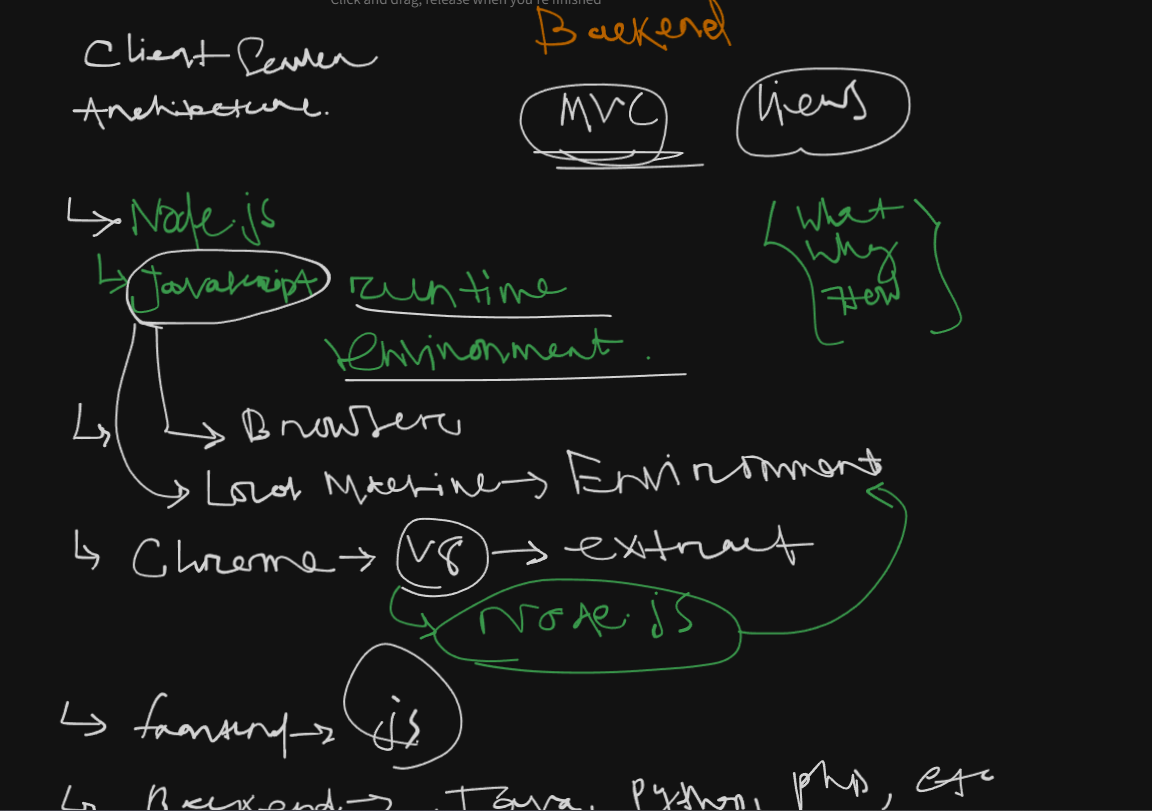 Click and drag, release when you're finished
Backend
Client Server
Architecture.
MVC
Views
Node.js
What
Why
How
Javascript runtime
environment.
Browsers
Local Machine → Environment
Chrome → V8 → extract
Node.js
→ js
Backend → Java, Python, php, etc